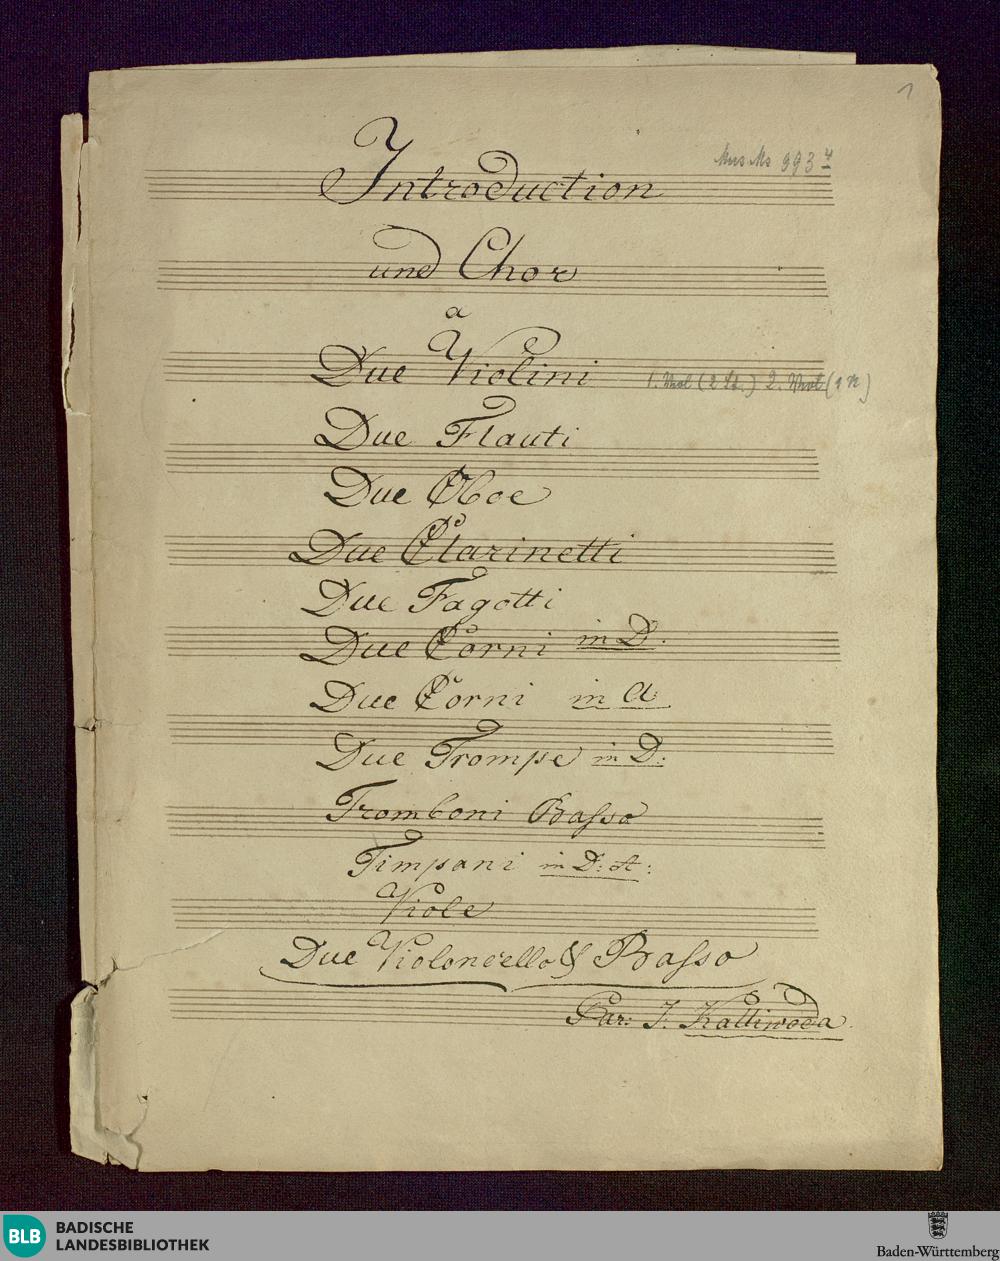 1
Mus. Ms. 993 4
Introduction
und Chor
a
Due Violini
1. Viol (2 St.) 2. Viol (1 n)
Due Flauti
Due Oboe
Due Clarinetti
Due Fagotti
Due Corni in D.
Due Corni in A:
Due Trompe in D:
Tromboni Basso
Timpani in D: A:
Viole
Due Violoncello & Basso
Par: J. Kalliwoda.
BLB BADISCHE
LANDESBIBLIOTHEK
Baden-Württemberg